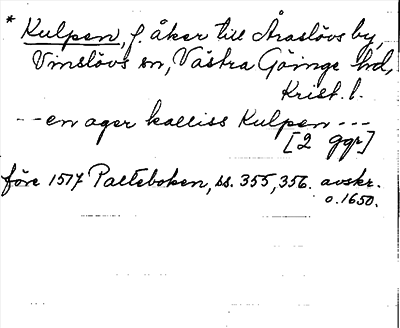 * Kulpen, f. åker till Åraslövs by,
Vinslövs sn, Västra Göinge hd,
Krist. l.
-- en ager kalliss Kulpen ---
[2 ggr]
före 1517 Palteboken, ss. 355, 356. avskr.
o. 1650.